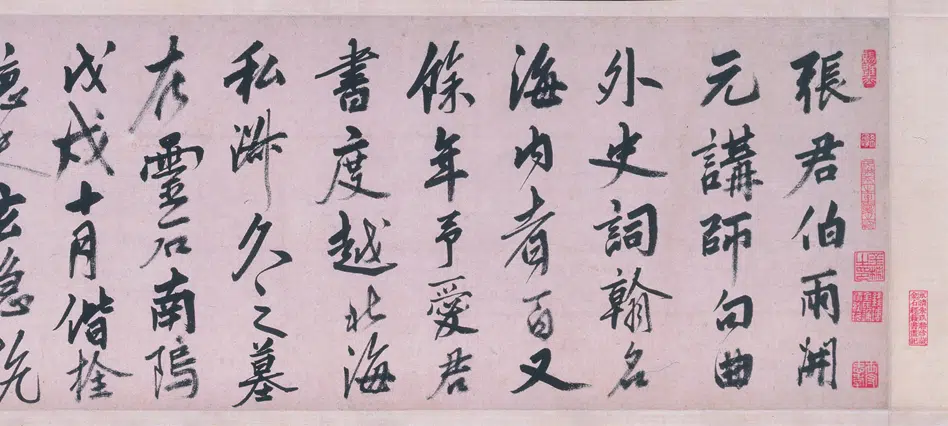 張君伯雨開
元講師句曲
外史詞翰名
海內者百又
餘年予愛君
書度越北海
私淑久之墓
在靈石南塢
戊戌十月偕